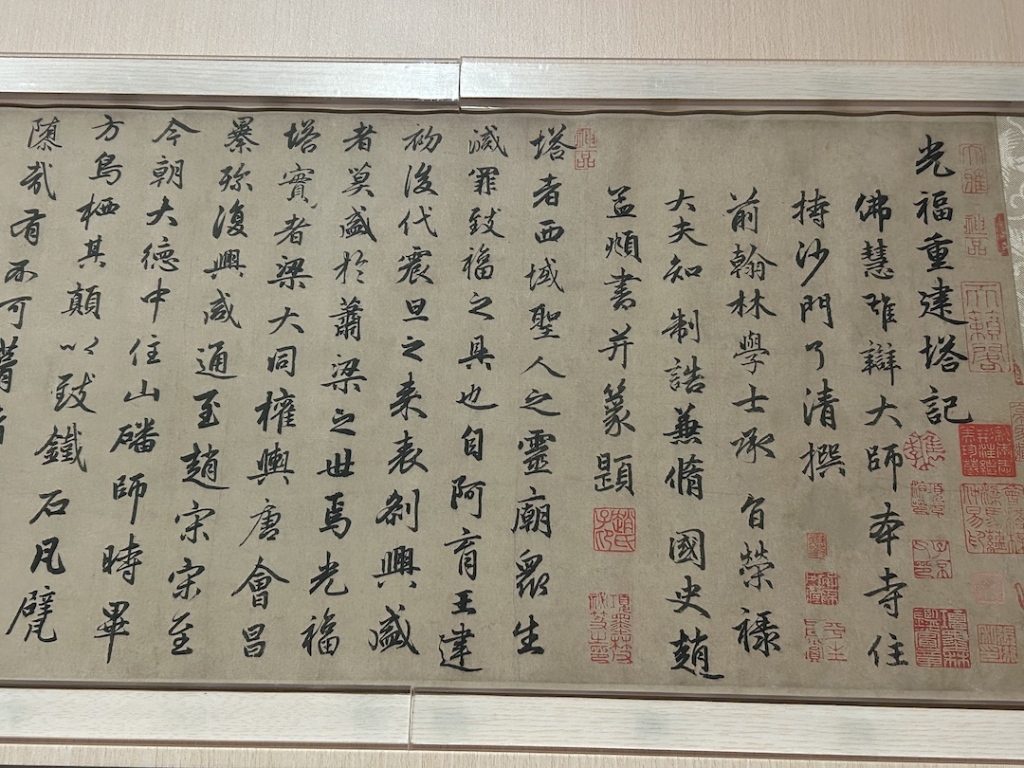 光福重建塔記
佛慧雄辯大師本寺住
持沙門了清撰
前翰林學士承旨榮祿
大夫知制誥兼脩國史趙
孟頫書并篆題
塔者西域聖人之靈廟眾生
滅罪致福之具也自阿育王建
初後代震旦之来表剎興盛
者莫盛於蕭梁之世焉光福
塔實者梁大同權輿唐會昌
暴殄復興咸通至趙宋宋至
今朝大德中住山磻師時畢
方鳥栖其顛以致鐵石凡甓
隳哉有不可
趙氏子昂